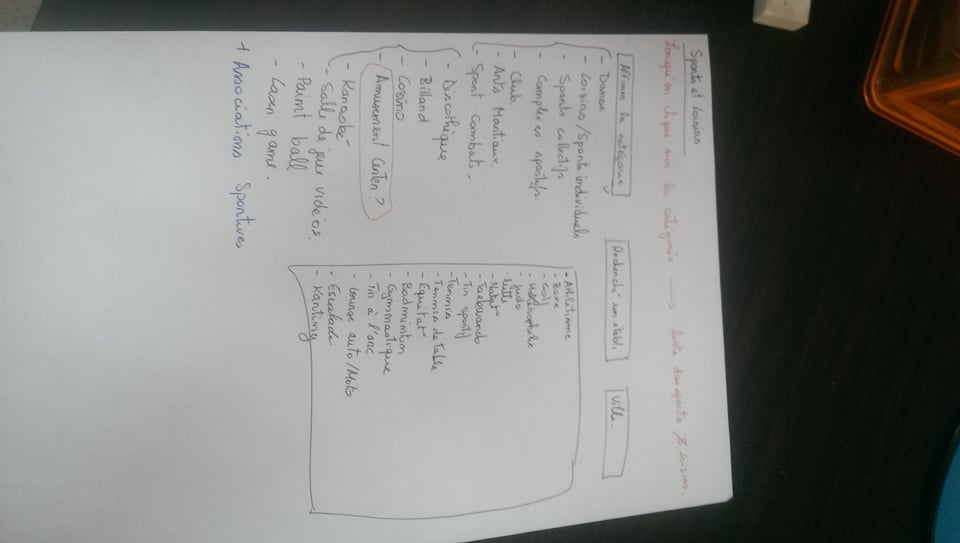 Sports et Loisirs
Lorsqu'on clique sur la catégorie → liste des sports & Loisirs
Affiner la catégorie
Recherché un établi.
Ville.
- Danse
- Loisirs/Sports individuels
- Sports collectifs
- Complexes sportifs
- Club.
- Arts Martiaux.
- Sport Combats.
- Discothèque
- Billard
- Casino
- Amusement Center ?
- Karaoké
- Salle de jeux vidéos.
- Paint ball
- Laser game.
+ Associations Sportives
- Athlétisme
- Boxe
- Golf
- Haltérophilie
- Judo
- Lutte
- Natat°
- Taekwando
- Tir sportif
- Tennis
- Tennis de Table
- Equitat°
- Badminton
- Gymnastique
- Tir à l'arc
- Course auto/Moto
- Escalade
- Karting